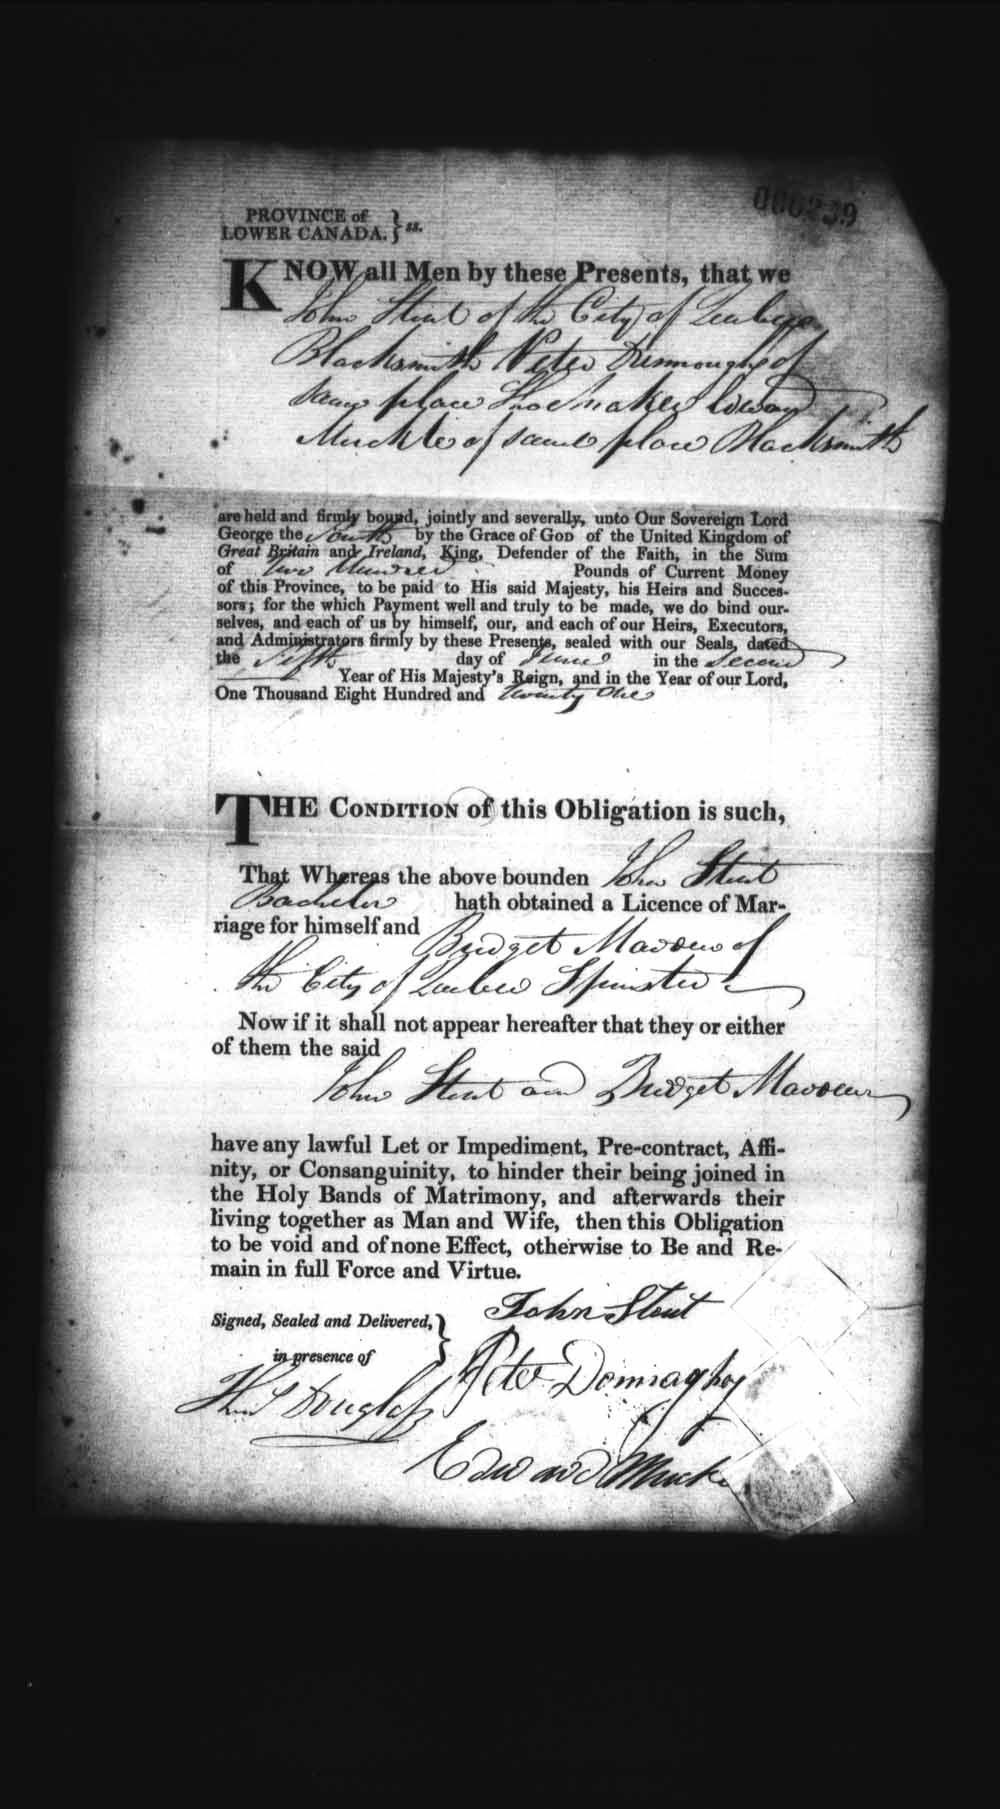 000239
PROVINCE of
LOWER CANADA. } ss.
KNOW all Men by these Presents, that we
John Stent of the City of Quebec
Blacksmith Peter of
same place Shoemaker Edward
Muckle of same place Blacksmith
are held and firmly bound, jointly and severally, unto Our Sovereign Lord
George the Fourth by the Grace of GOD of the United Kingdom of
Great Britain and Ireland, King, Defender of the Faith, in the Sum
of Two Hundred Pounds of Current Money
of this Province, to be paid to His said Majesty, his Heirs and Succes-
sors; for the which Payment well and truly to be made, we do bind our-
selves, and each of us by himself, our, and each of our Heirs, Executors,
and Administrators firmly by these Presents, sealed with our Seals, dated
the Fifth day of June in the Second
Year of His Majesty's Reign, and in the Year of our Lord,
One Thousand Eight Hundred and twenty One
THE CONDITION of this Obligation is such,
That Whereas the above bounden John Stent
Bachelor hath obtained a Licence of Mar-
riage for himself and
Bridget of
the City of Quebec Spinster
Now if it shall not appear hereafter that they or either
of them the said
John Stent and Bridget
have any lawful Let or Impediment, Pre-contract, Affi-
nity, or Consanguinity, to hinder their being joined in
the Holy Bands of Matrimony, and afterwards their
living together as Man and Wife, then this Obligation
to be void and of none Effect, otherwise to Be and Re-
main in full Force and Virtue.
Signed, Sealed and Delivered, }
in presence of
John Stent
Peter Donnaghoy
Thos Douglass
Edward Muckle